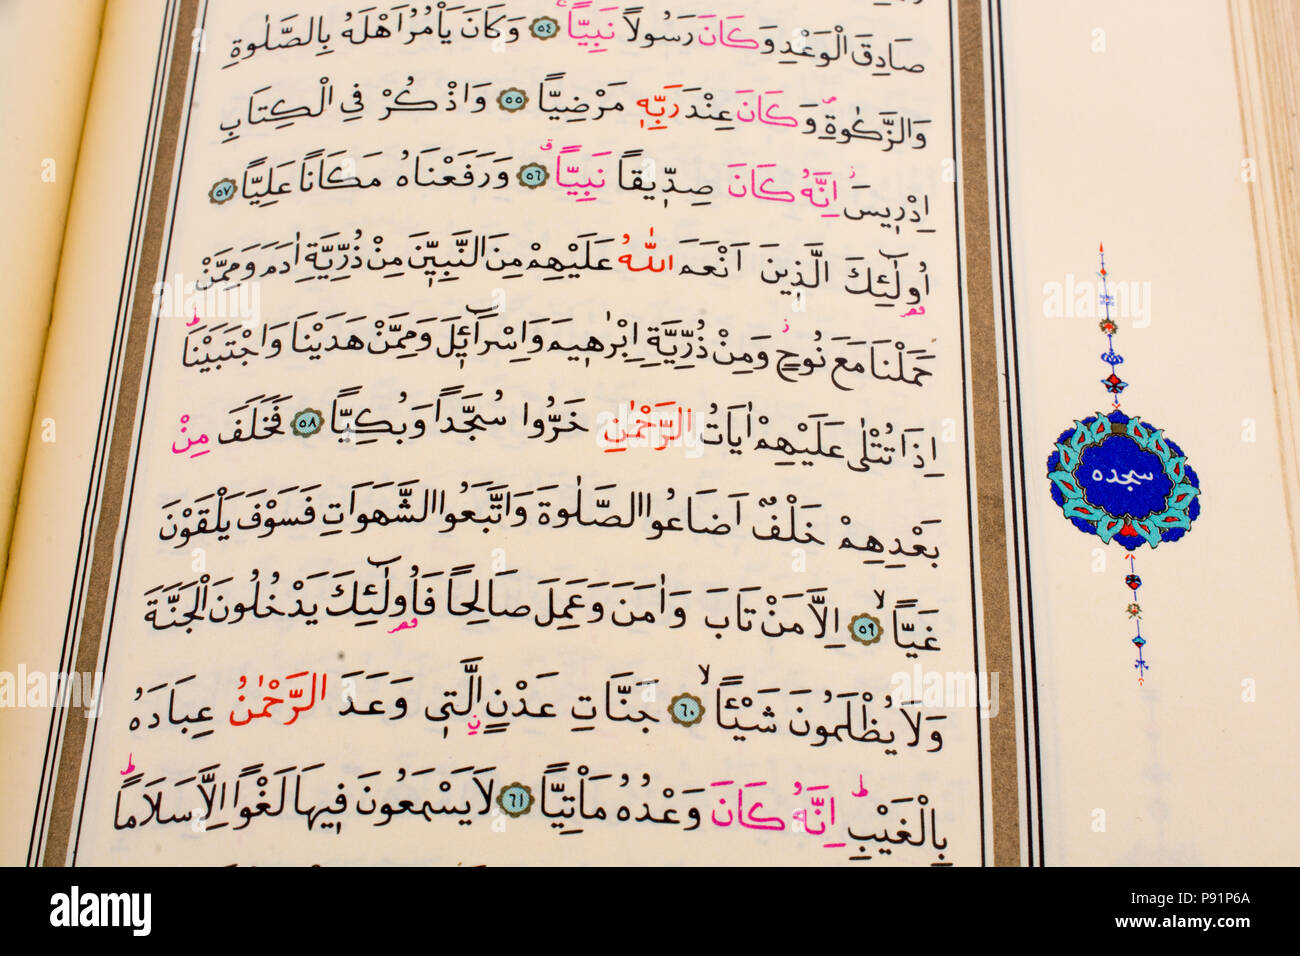 صَادِقَ الْوَعْدِ وَكَانَ رَسُولاً نَبِيًّا ﴿٥٤﴾ وَكَانَ يَأْمُرُ اَهْلَهُ بِالصَّلٰوةِ
وَالزَّكٰوةِۖ وَكَانَ عِنْدَ رَبِّهٖ مَرْضِيًّا ﴿٥٥﴾ وَاذْكُرْ فِي الْكِتَابِ
اِدْرٖيسَۘ اِنَّهُ كَانَ صِدّٖيقاً نَبِيًّاۗ ﴿٥٦﴾ وَرَفَعْنَاهُ مَكَاناً عَلِيًّا ﴿٥٧﴾
اُولٰٓئِكَ الَّذٖينَ اَنْعَمَ اللّٰهُ عَلَيْهِمْ مِنَ النَّبِيّٖنَ مِنْ ذُرِّيَّةِ اٰدَمَ وَمِمَّنْ
حَمَلْنَا مَعَ نُوحٍؗ وَمِنْ ذُرِّيَّةِ اِبْرٰهٖيمَ وَاِسْرَٓائٖلَ وَمِمَّنْ هَدَيْنَا وَاجْتَبَيْنَاؕ
اِذَا تُتْلٰى عَلَيْهِمْ اٰيَاتُ الرَّحْمٰنِ خَرُّوا سُجَّداً وَبُكِيًّا ﴿٥٨﴾ فَخَلَفَ مِنْ
بَعْدِهِمْ خَلْفٌ اَضَاعُوا الصَّلٰوةَ وَاتَّبَعُوا الشَّهَوَاتِ فَسَوْفَ يَلْقَوْنَ
غَيًّاۙ ﴿٥٩﴾ اِلَّا مَنْ تَابَ وَاٰمَنَ وَعَمِلَ صَالِحاً فَاُولٰٓئِكَ يَدْخُلُونَ الْجَنَّةَ
وَلَا يُظْلَمُونَ شَيْـٔاًۙ ﴿٦٠﴾ جَنَّاتِ عَدْنٍ الَّتٖي وَعَدَ الرَّحْمٰنُ عِبَادَهُ
بِالْغَيْبِؕ اِنَّهُ كَانَ وَعْدُهُ مَأْتِيًّا ﴿٦١﴾ لَا يَسْمَعُونَ فٖيهَا لَغْواً اِلَّا سَلَاماًؕ
سجده
alamy
Image ID: P91P6A
www.alamy.com